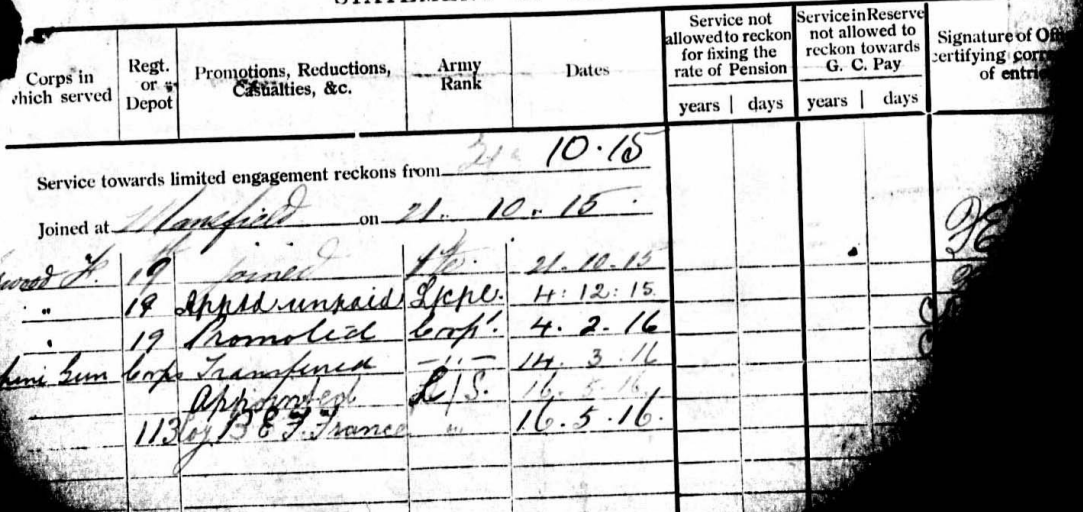 Corps in which served | Regt. or Depot | Promotions, Reductions, Casualties, &c. | Army Rank | Dates | Service not allowed to reckon for fixing the rate of Pension | Service in Reserve not allowed to reckon towards G. C. Pay | Signature of Off certifying corre of entrie
years | days | years | days
Service towards limited engagement reckons from 21 10.15
Joined at Mansfield on 21. 10. 15.
wood F. 19 joined Pte. 21.10.15
" 19 Apptd unpaid L/Cpl. 4:12:15
" 19 Promoted Corpl. 4.2.16
hine Gun Corps Transferred -"- 14.3.16
Appointed L/S. 16.5.16
113 Coy B E F. France " 16.5.16.